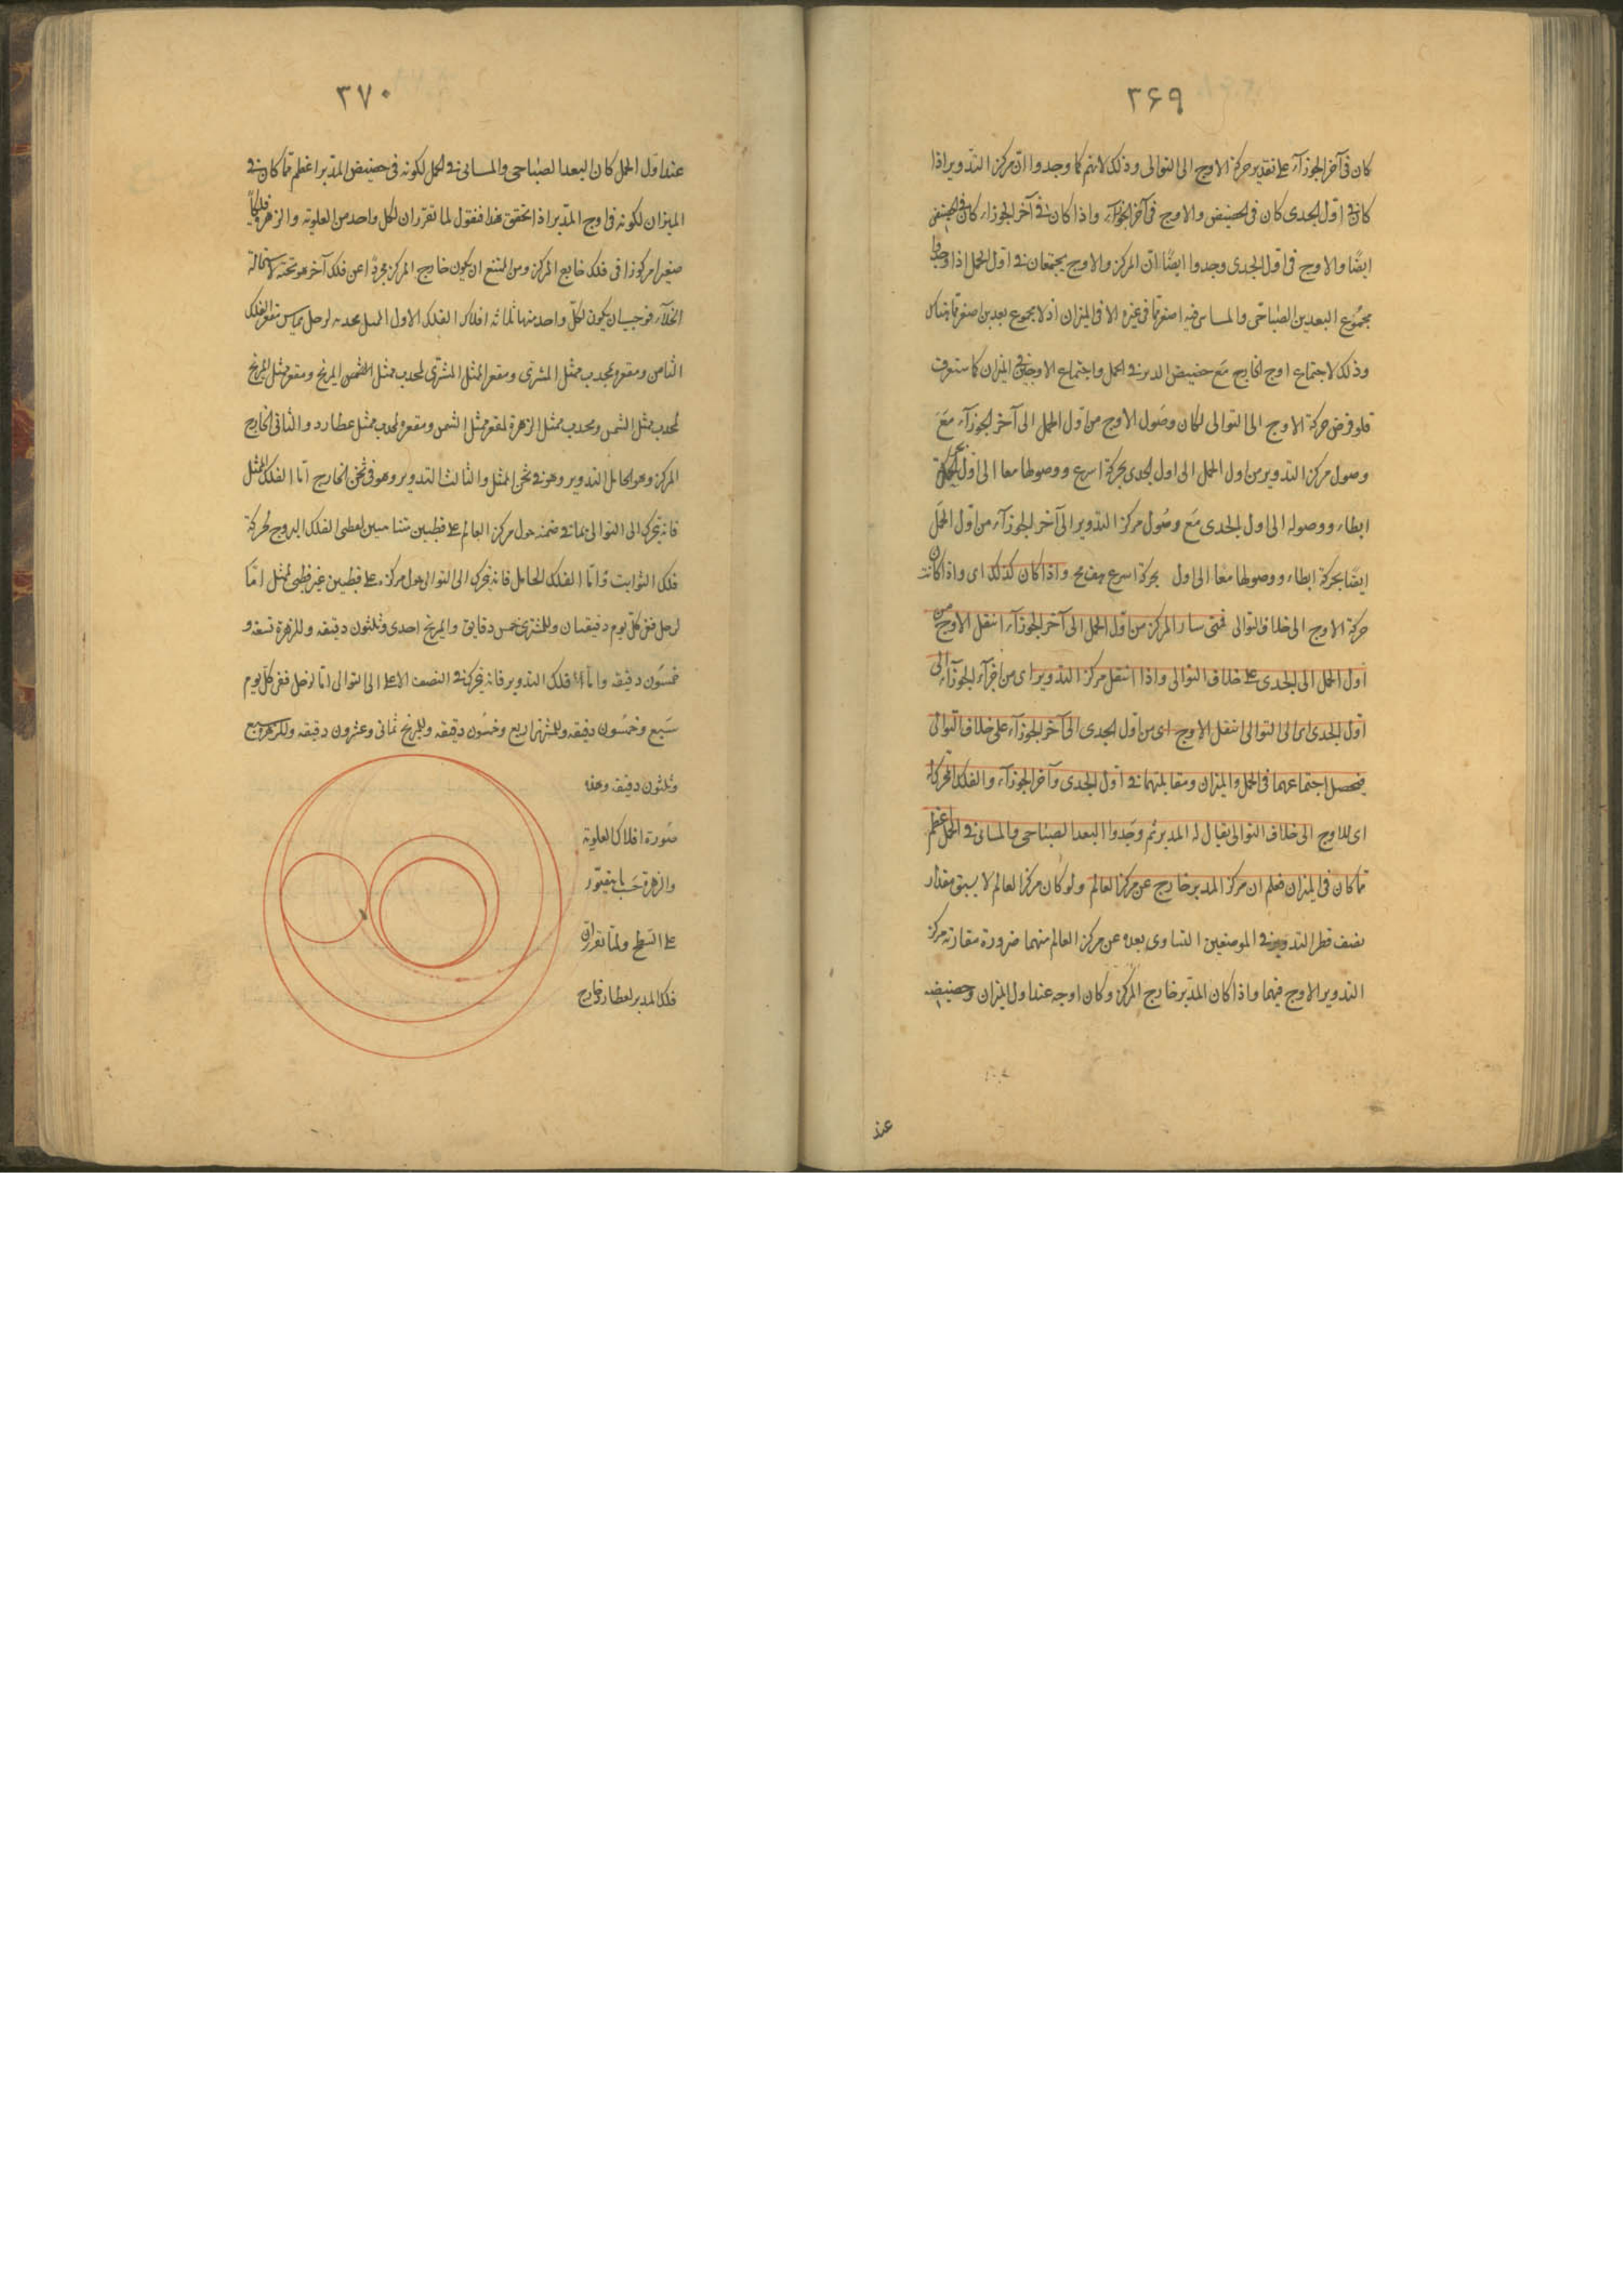 ٣۶٩
كان فى آخر الجوزآء على تقدير حركة الاوج الى التوالى وذلك لانهم كما وجدوا انّ مركز التدوير اذا
كان فى اول الجدى كان فى الحضيض والاوج فى آخر الجوزآء واذا كان فى آخر الجوزاء كان فى الحضيض
ايضًا والاوج فى اول الجدى وجدوا ايضًا انّ المركز والاوج يجتمعان فى اول الحمل اذا وجدوا
مجموع البعدين الصّباحى والمسائى فيه اصغر مما فى غيره الا فى الميزان اذ لا مجموع بعدين اصغر مما هناك
وذلك لاجتماع اوج الخارج مع حضيض المدير فى الحمل واجتماع الاوجين فى الميزان كما ستعرف
فلو فرض حركة الاوج الى التوالى لكان وصول الاوج من اول الحمل الى آخر الجوزآء مع
وصول مركز التدوير من اول الحمل الى اول الجدى بحركة اسرع ووصولهما معا الى اول الحمل بحركة
ابطاء ووصوله الى اول الجدى مع وصول مركز التدوير الى آخر الجوزآء من اول الحمل
ايضا بحركة ابطاء ووصولهما معا الى اول بحركة اسرع هف مح واذا كان كذلك اى واذا كانت
حركة الاوج الى خلاف التوالى فمتى سار المركز من اول الحمل الى آخر الجوزآء انتقل الاوج من
اول الحمل الى الجدى على خلاف التوالى واذا انتقل مركز التدوير اى من آخر الجوزآء الى
اول الجدى اى الى التوالى انتقل الاوج اى من اول الجدى الى آخر الجوزآء على خلاف التوالى
فيحصل اجتماعهما فى الحمل والميزان ومقابلتهما فى اول الجدى وآخر الجوزآء والفلك المحرك له
اى للاوج الى خلاف التوالى يقال له المدير ثم وجدوا البعد الصباحى والمسائى فى الحمل اعظم
مما كان فى الميزان فعلم ان مركز المدير خارج عن مركز العالم ولو كان مركز العالم لا يسبق مقدار
نصف قطر التدوير فى الموضعين لتساوى بعده عن مركز العالم منهما ضرورة مقارنة مركز
التدوير الاوج فيهما واذا كان المدير خارج المركز وكان اوجه عند اول الميزان وحضيضه
عند
٣٧٠
عند اول الحمل كان البعد الصباحى والمسائى فى الحمل لكونه فى حضيض المدير اعظم مما كان فى
الميزان لكونه فى اوج المدير اذا تحقق هذا فنقول لما تقرر ان لكل واحد من العلوية والزهرة فلكاً
صغيرا مركوزا فى فلك خارج المركز ومن الممتنع ان يكون خارج المركز مجردًا عن فلك آخر هو تحته لاستحالة
الخلآء فوجب ان يكون لكل واحد منها ثلاثه افلاك الفلك الاول الممثل محدبه لزحل يماس مقعر الفلك
الثامن ومقعره لمحدب ممثل المشترى ومقعر الممثل المشترى لمحدب ممثل المريخ ومقعر ممثل المريخ
لمحدب ممثل الشمس ومحدب ممثل الزهرة لمقعر ممثل الشمس ومقعره لمحدب ممثل عطارد والثانى الخارج
المركز وهو الحامل التدوير وهو فى ثخن الممثل والثالث التدوير وهو فى ثخن الخارج امّا الفلك الممثل
فانه يتحرك الى التوالى بما فى ضمنه حول مركز العالم على قطبين متسامتين لقطبى الفلك البروج بحركة
فلك الثوابت وامّا الفلك الحامل فانه يتحرك الى التوالى حول مركزه على قطبين غير قطبى الممثل امّا
لزحل ففى كل يوم دقيقتان وللمشترى خمس دقايق والمريخ احدى وثلثون دقيقه وللزهرة تسعة و
خمسون دقيقه وامّا فلك التدوير فانه يتحرك فى النصف الاعلى الى التوالى امّا لزحل ففى كل يوم
سبع وخمسون دقيقه وللمشترى اربع وخمسون دقيقه وللمريخ ثمانى وعشرون دقيقه وللزهرة سبع
وثلثون دقيقه وهذه
صورة افلاك العلوية
والزهرة حسب ما يتصور
على السّطح ولمّا تقرر ان
فلك المدير لعطارد خارج